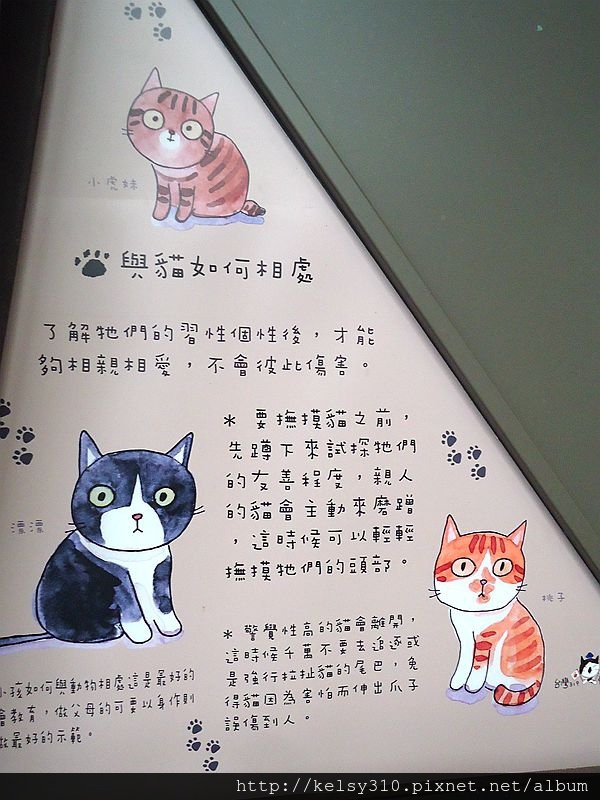 小虎妹
與貓如何相處
了解牠們的習性個性後，才能
夠相親相愛，不會彼此傷害。
* 要撫摸貓之前，
先蹲下來試探牠們
的友善程度，親人
的貓會主動來磨蹭
，這時候可以輕輕
撫摸牠們的頭部。
漂漂
桃子
* 警覺性高的貓會離開，
這時候千萬不要去追逐或
是強行拉扯貓的尾巴，免
得貓因為害怕而伸出爪子
誤傷到人。
小孩如何與動物相處這是最好的
會教育，做父母的可要以身作則
做最好的示範。
http://kelsy310.pixnet.net/album